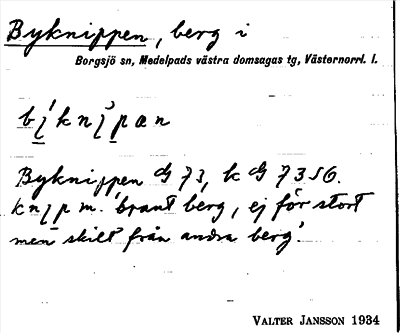 Byknippen, berg i
Borgsjö sn, Medelpads västra domsagas tg, Västernorrl. l.
Byknippen G 73, k G 7356.
m. 'brant berg, ej för stort
men skilt från andra berg'.
VALTER JANSSON 1934